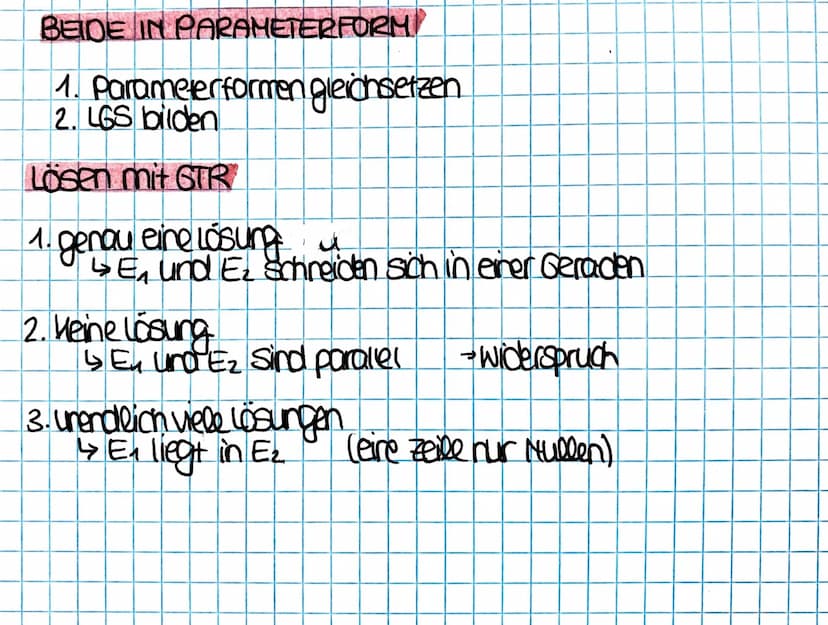 BEIDE IN PARAMETERFORM
1. Parameterformen gleichsetzen
2. LGS bilden
LÖSEN mit GTR
1. genau eine Lösung
↳ E₁ und E₂ schneiden sich in einer Geraden
2. Keine Lösung
↳ E₁ und E₂ sind parallel → Widerspruch
3. unendlich viele Lösungen
↳ E₁ liegt in E₂ (eine Zeile nur Nullen)